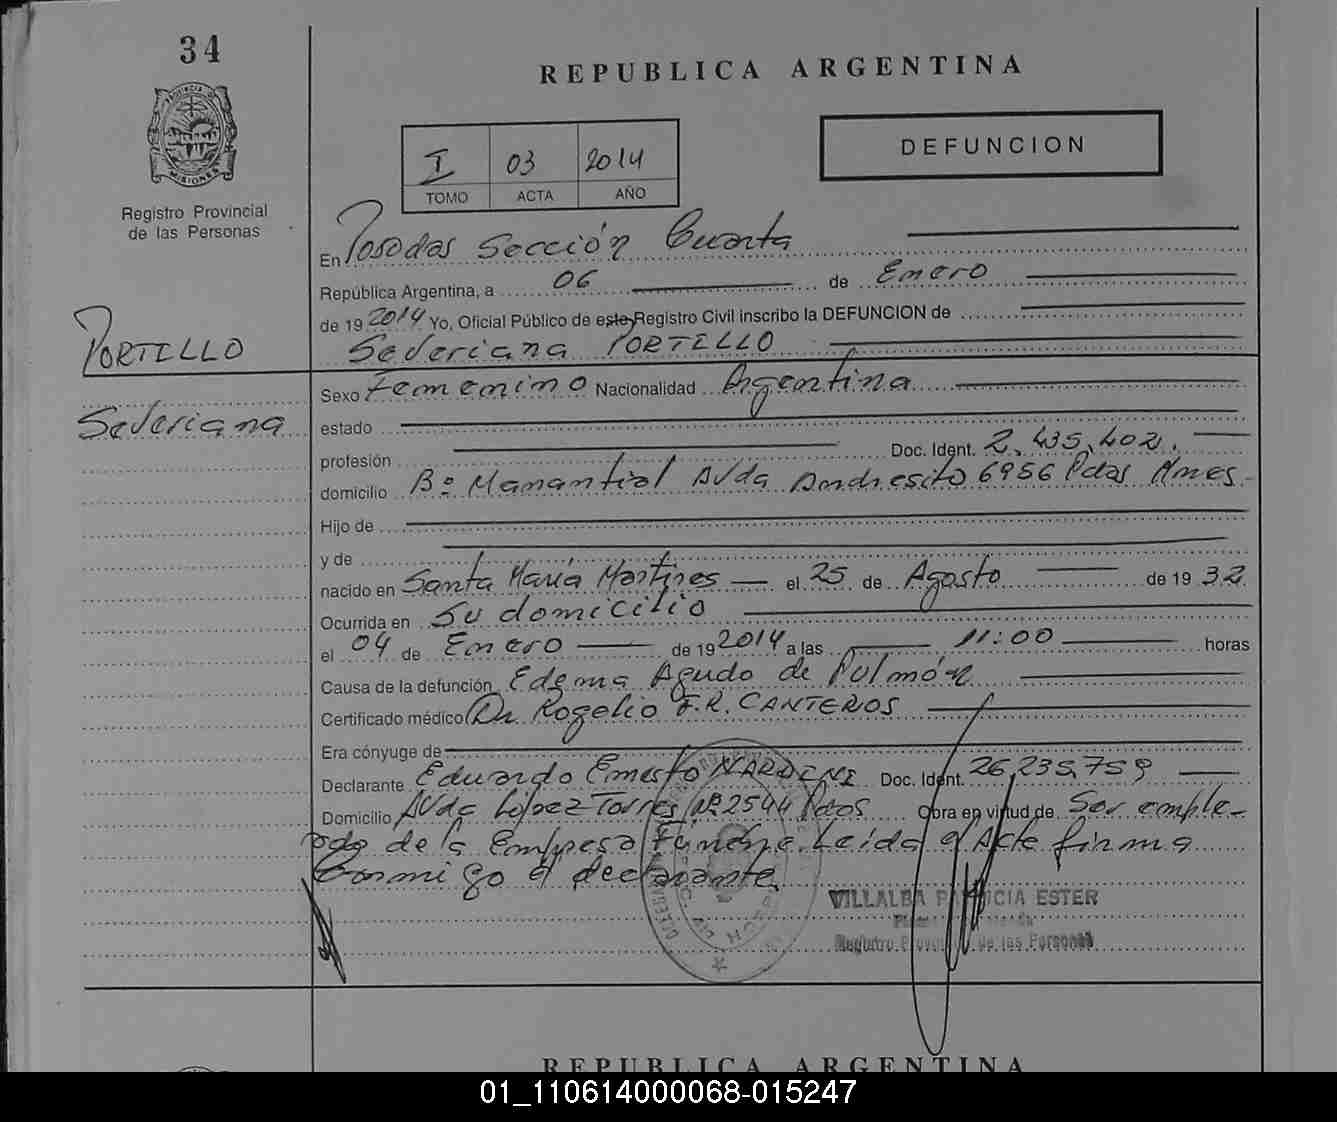 34
REPUBLICA ARGENTINA
PROVINCIA DE
MISIONES
Registro Provincial
de las Personas
I 03 2014
TOMO ACTA AÑO
DEFUNCION
En Posadas Sección Cuarta
República Argentina, a 06 de Enero
de 19 2014 Yo, Oficial Público de este Registro Civil inscribo la DEFUNCION de
Severiana PORTILLO
PORTILLO
Severiana
Sexo Femenino Nacionalidad Argentina
estado
profesión Doc. Ident. 2.435.402.
domicilio Bº Manantial AVda Andresito 6956 Pdas Mnes
Hijo de
y de
nacido en Santa María Martires el 25 de Agosto de 19 32
Ocurrida en Su domicilio
el 04 de Enero de 19 2014 a las 11:00 horas
Causa de la defunción Edema Agudo de Pulmón
Certificado médico Dr Rogelio F.R. CANTEROS
Era cónyuge de
Declarante Eduardo Ernesto NARDINE Doc. Ident. 26,235,759
Domicilio AVda López Torres Nº 2544 Pdas Obra en virtud de Ser emple-
ado de la Empresa Fúnebre. Leída el Acta firma
Conmigo el declarante
VILLALBA PATRICIA ESTER
Registro Provincial de las Personas
REPUBLICA ARGENTINA
01_110614000068-015247